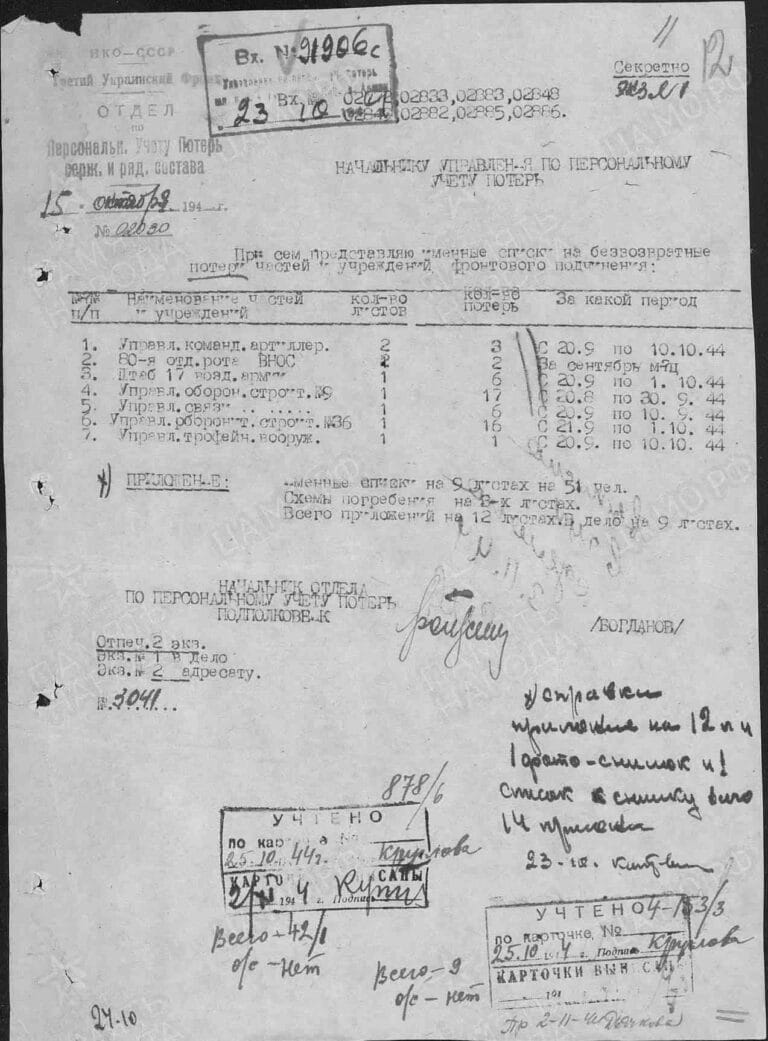 11
12
НКО-СССР
Третий Украинский Фронт
ОТДЕЛ
по
Персональн. Учету Потерь
серж. и ряд. состава
15 октября 194 г.
№ 02030
Вх. № 91906с
23 10
Вх №
02833,02883,02848
02882,02885,02886.
Секретно
экз.№1
НАЧАЛЬНИКУ УПРАВЛЕНИЯ ПО ПЕРСОНАЛЬНОМУ
УЧЕТУ ПОТЕРЬ
При сем представляю именные списки на безвозвратные
потери частей и учреждений фронтового подчинения:
№№ п/п Наименование частей и учреждений кол-во листов кол-во потерь За какой период
1. Управл.команд.артиллер. 2 3 С 20.9 по 10.10.44
2. 80-я отд.рота ВНОС 2 2 За сентябрь м-ц
3. Штаб 17 возд.армии 1 6 С 20.9 по 1. 10.44
4. Управл.оборон.строит.№9 1 17 С 20.8 по 30. 9. 44
5. Управл.связи . . . . . . 1 6 С 20.9 по 10. 9. 44
6. Управл.рборонит.строит.№36 1 16 С 21.9 по 1.10. 44
7. Управл.трофейн.вооруж. 1 1 С 20.9. по 10.10. 44
х) ПРИЛОЖЕНИЕ: Именные списки на 9 листах на 51 чел.
Схемы погребения на 3-х листах.
Всего приложений на 12 листах.В дело на 9 листах.
НАЧАЛЬНИК ОТДЕЛА
ПО ПЕРСОНАЛЬНОМУ УЧЕТУ ПОТЕРЬ
ПОДПОЛКОВНИК
/БОГДАНОВ/
Отпеч.2 экз.
Экз.№ 1 в дело
Экз.№ 2 адресату.
№.3041...
х) справки
на 12 л и
1 фото-снимок и 1
список к снимку всего
14
23-10.
878/6
УЧТЕНО
по карточке №
25.10.44г. Круглова
КАРТОЧКИ ВЫПИСАНЫ
2/XI 1944 г. Подпись
Всего-42/1
о/с-нет
Всего-9
о/с-нет
УЧТЕНО 4-153/3
по карточке, №
25.10 1944 г. Подпись Круглова
КАРТОЧКИ ВЫПИСАНЫ
194
Пр 2-11-44 Дьячкова
24-10